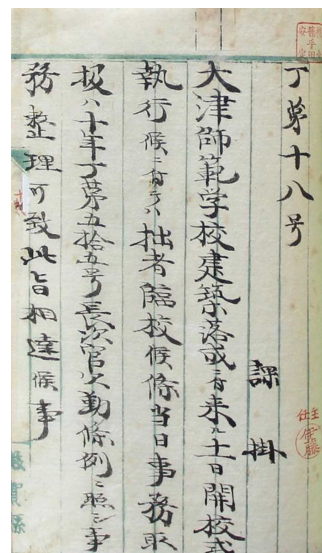 丁第十八号
課掛
大津師範学校建築落成ニ付来ル土日開校式
執行候ニ付テハ拙者臨校候條当日事務取
扱ハ十年丁第五拾五号長次官欠勤條例ニ照シ事
務整理可致此旨相達候事
主任
滋賀県